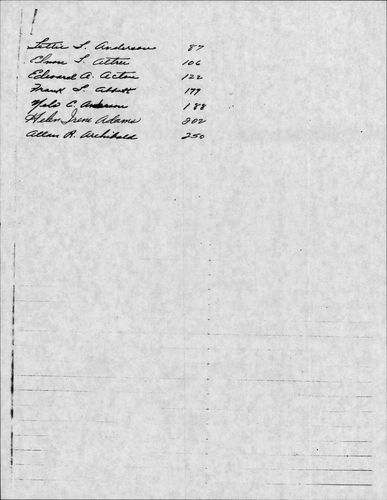 Lettie L. Anderson 87
Elmer L. Attree 106
Edward A. Acton 122
Frank L. Abbott 177
Nels C. Anderson 188
Helen Irene Adams 202
Allan R. Archibald 250